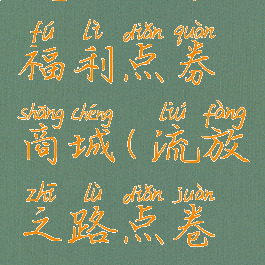 fú lì diǎn quàn
福利点券
shāng chéng liú fàng
商城(流放
zhī lù diǎn juàn
之路点卷